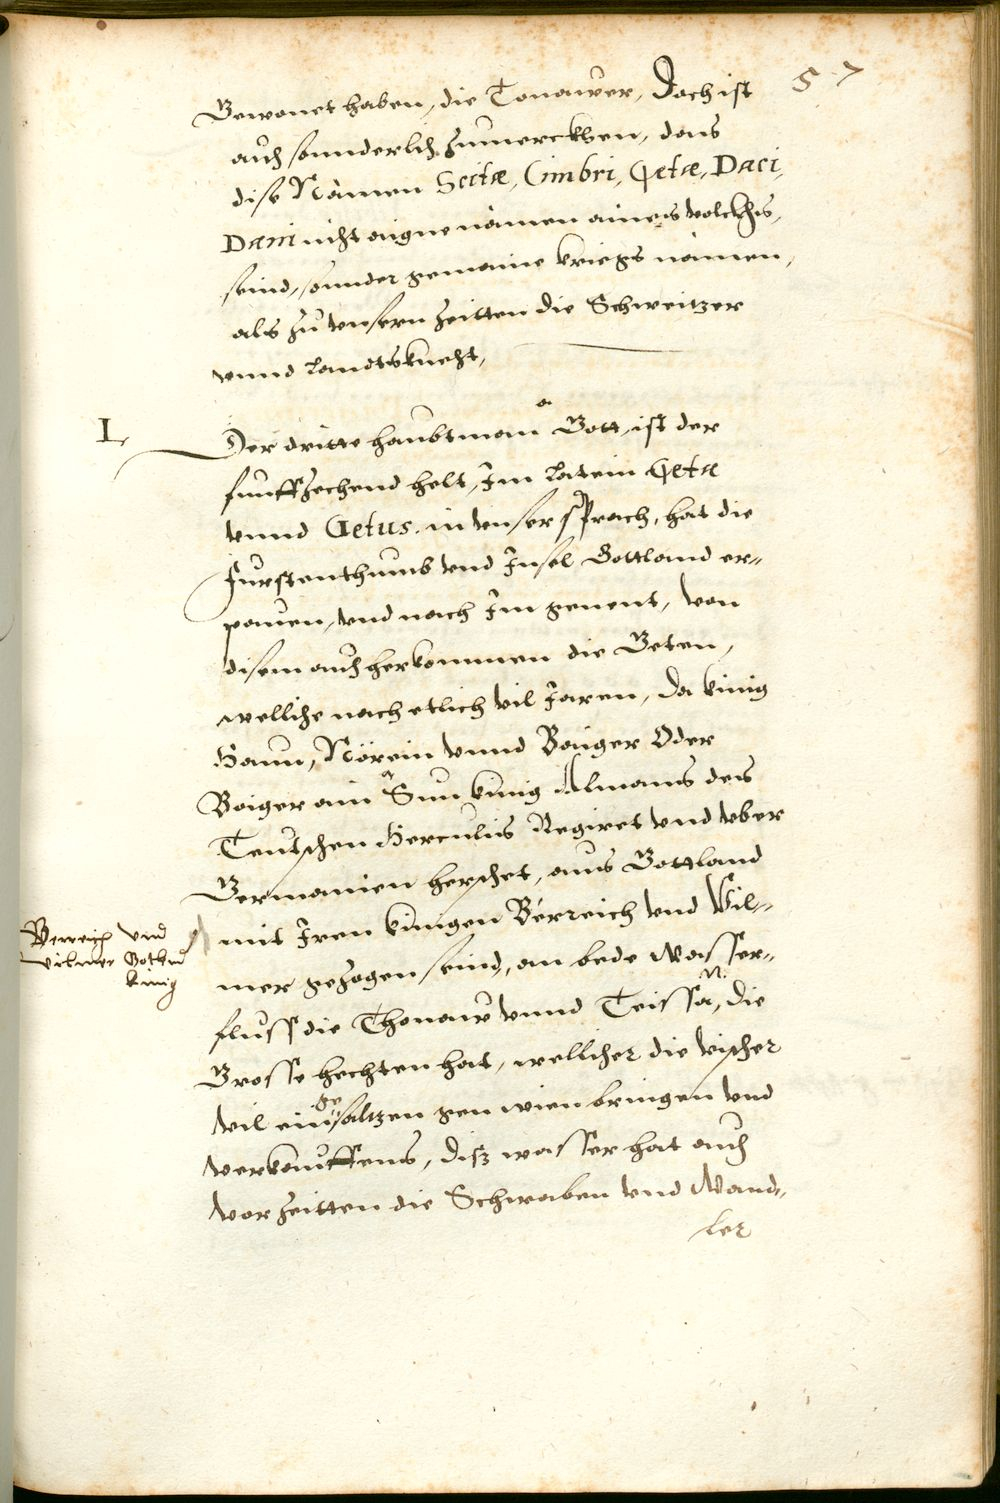 57
Gewonet haben, die Tonawer, Doch ist
auch sonnderlich zumerckhen, dans
dise Nämen Scitæ, Cimbri, Getæ, Daci,
Dani nicht aigne nämen aines volckhs,
seind, sonnder gemaine kriegs nämen,
als zu unsern zeitten die Schweitzer
vnnd landtsknecht,
L
Der dritte haubtman Gott, ist der
funffzechend helt, Im latein Geta
vnnd Getus. in vnser sprach, hat die
Furstenthumb vnd Insel Gottland er-
pauen, vnd nach Im genent, von
disem auch herkommen die Geten,
welliche nach etlich vil Jaren, da kinig
Haun, Nörein vnnd Baiger Oder
Boiger ain Sun kinig Almans des
Teutschen Herculis Regiret vnd vber
Germanien herschet, aus Gottland
mit Iren kunigen Berreich vnd Vil-
mer gezogen seind, an bede Wasser-
fluss die Thonaw vnnd Teissa, die
Grosse hechten hat, wellicher die vischer
vil ein gesaltzen gen wien bringen vnd
verkauffens, dis wasser hat auch
vor zeitten die Schwaben vnd Wand-
ler
Berreich vnd
vilmer Gotland
kinig